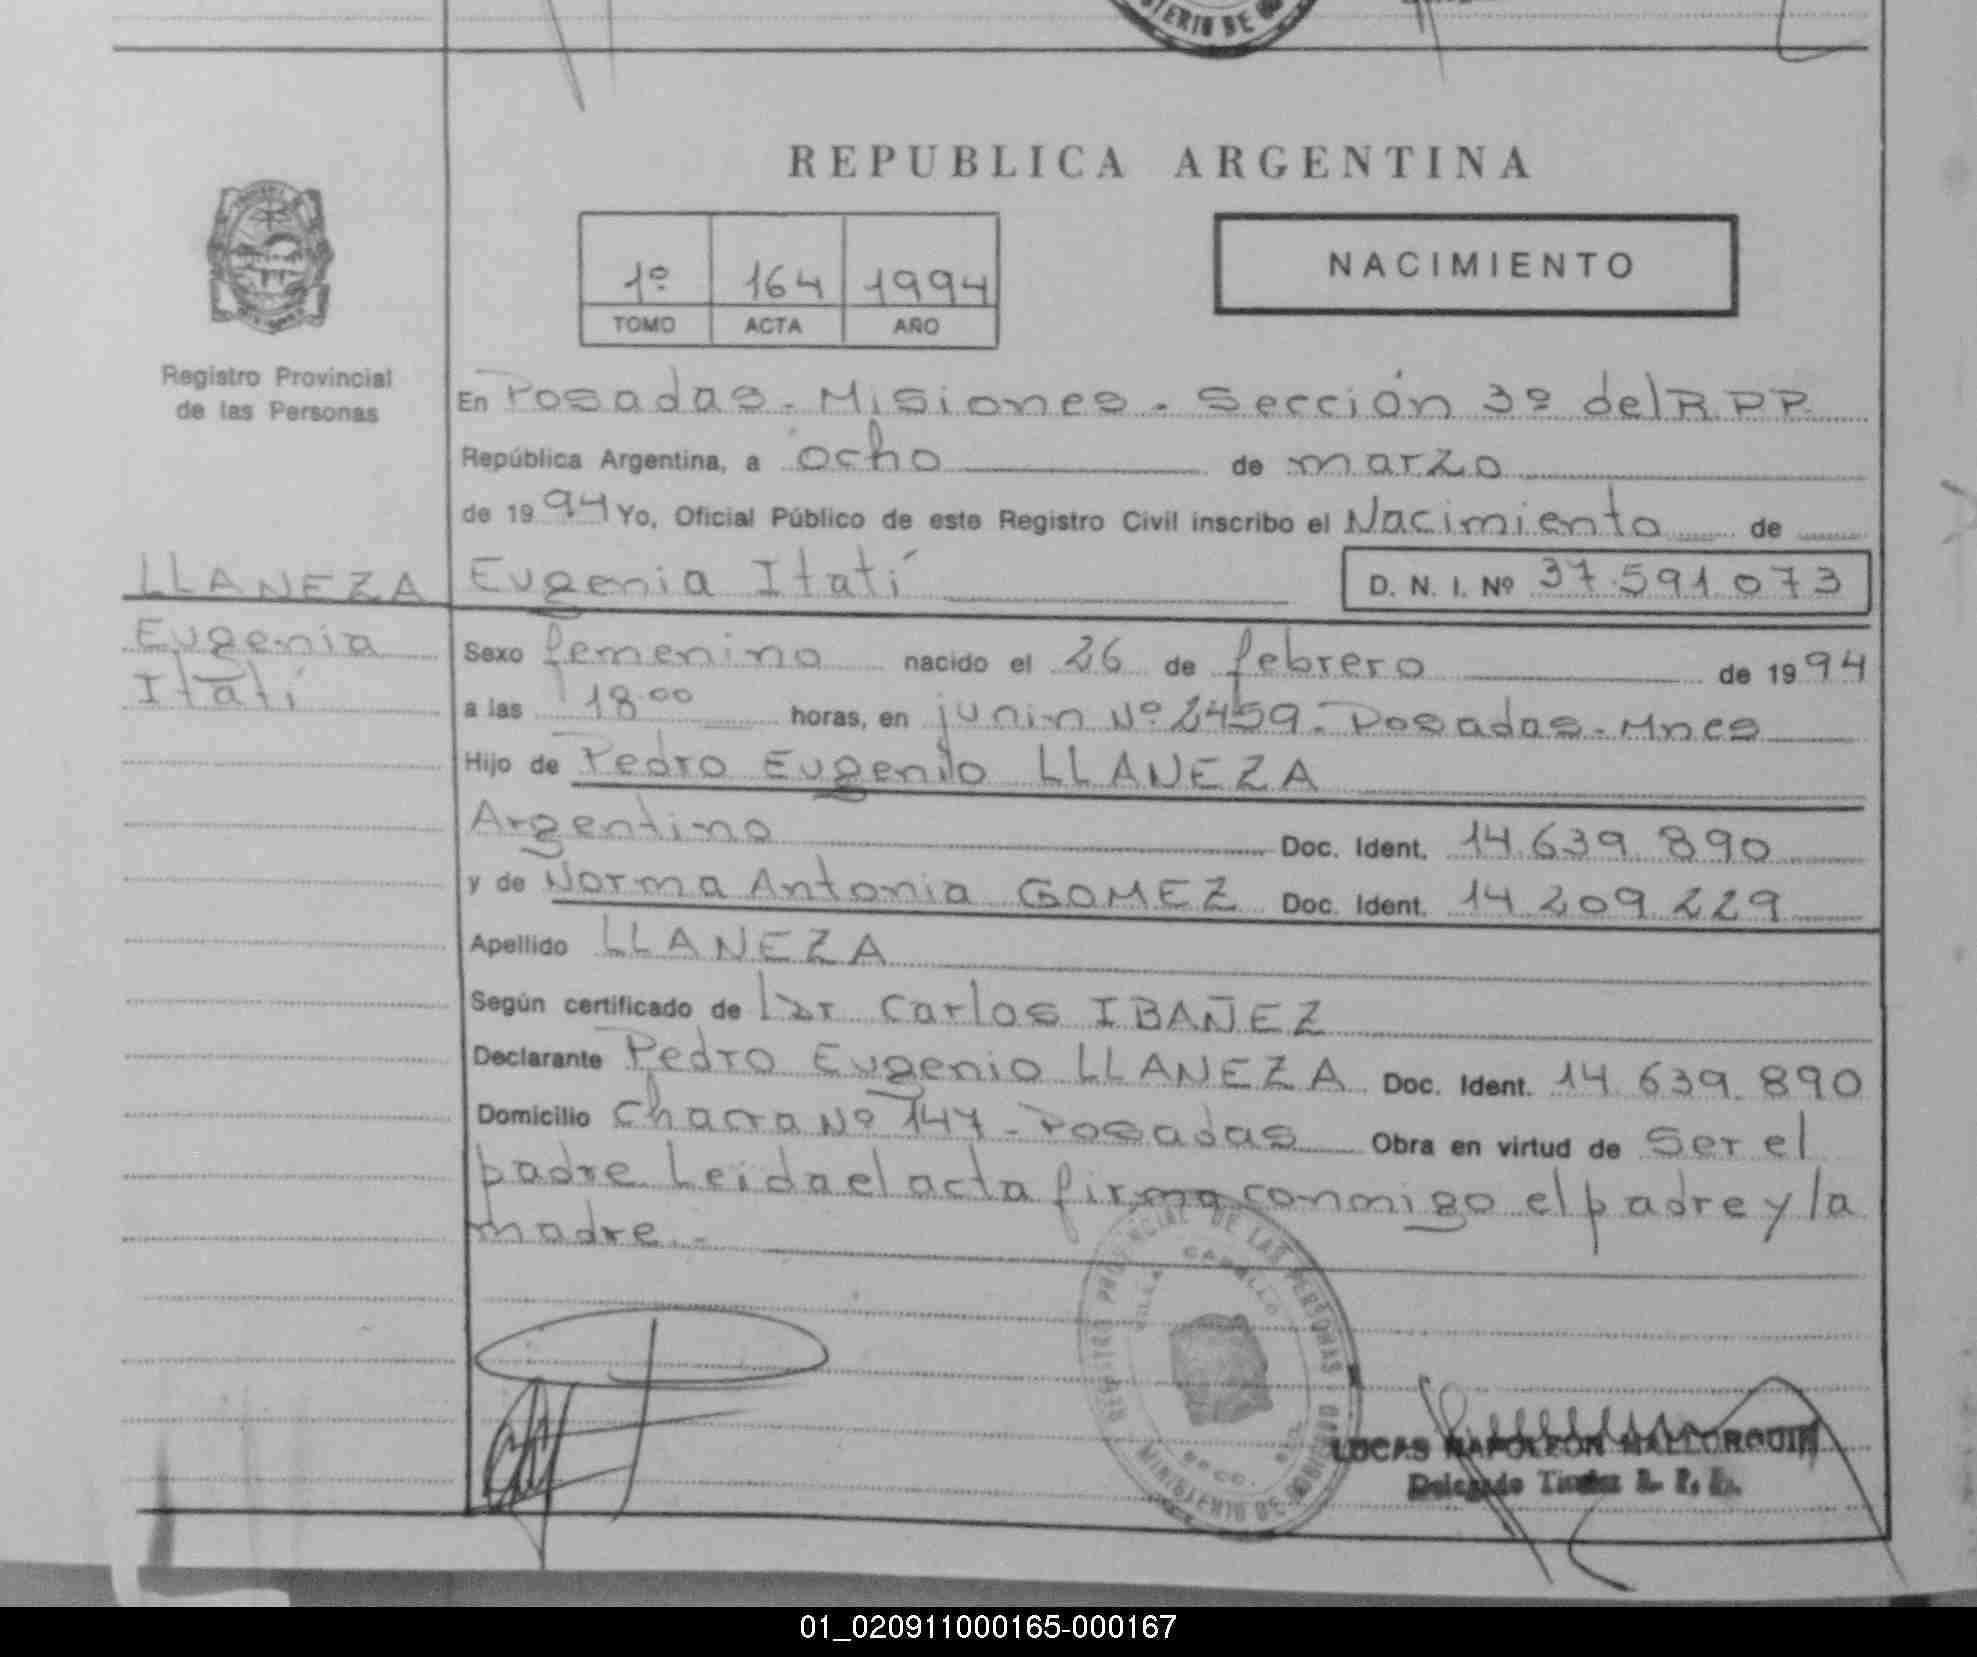 TERIO DE GO
REPUBLICA ARGENTINA
1º 164 1994
TOMO ACTA AÑO
NACIMIENTO
Registro Provincial
de las Personas
En Posadas - Misiones - Sección 3º del RPP
República Argentina, a ocho de marzo
de 1994 Yo, Oficial Público de este Registro Civil inscribo el Nacimiento de
LLANEZA Eugenia Itatí D. N. I. Nº 37.591.073
Eugenia
Itatí
Sexo femenino nacido el 26 de febrero de 1994
a las 18.00 horas, en junin Nº 2459 - Posadas - Mnes
Hijo de Pedro Eugenio LLANEZA
Argentino Doc. Ident. 14.639.890
y de Norma Antonia GOMEZ Doc. Ident. 14.209.229
Apellido LLANEZA
Según certificado de Dr Carlos IBAÑEZ
Declarante Pedro Eugenio LLANEZA Doc. Ident. 14.639.890
Domicilio Chacra Nº 147 - Posadas Obra en virtud de Ser el
padre. Leida el acta firma conmigo el padre y la
madre. -
REGISTRO PROVINCIAL DE LAS PERSONAS
MINISTERIO DE GOBIERNO
LUCAS NAPOLEON MALLORQUIN
Delegado Titular
01_020911000165-000167